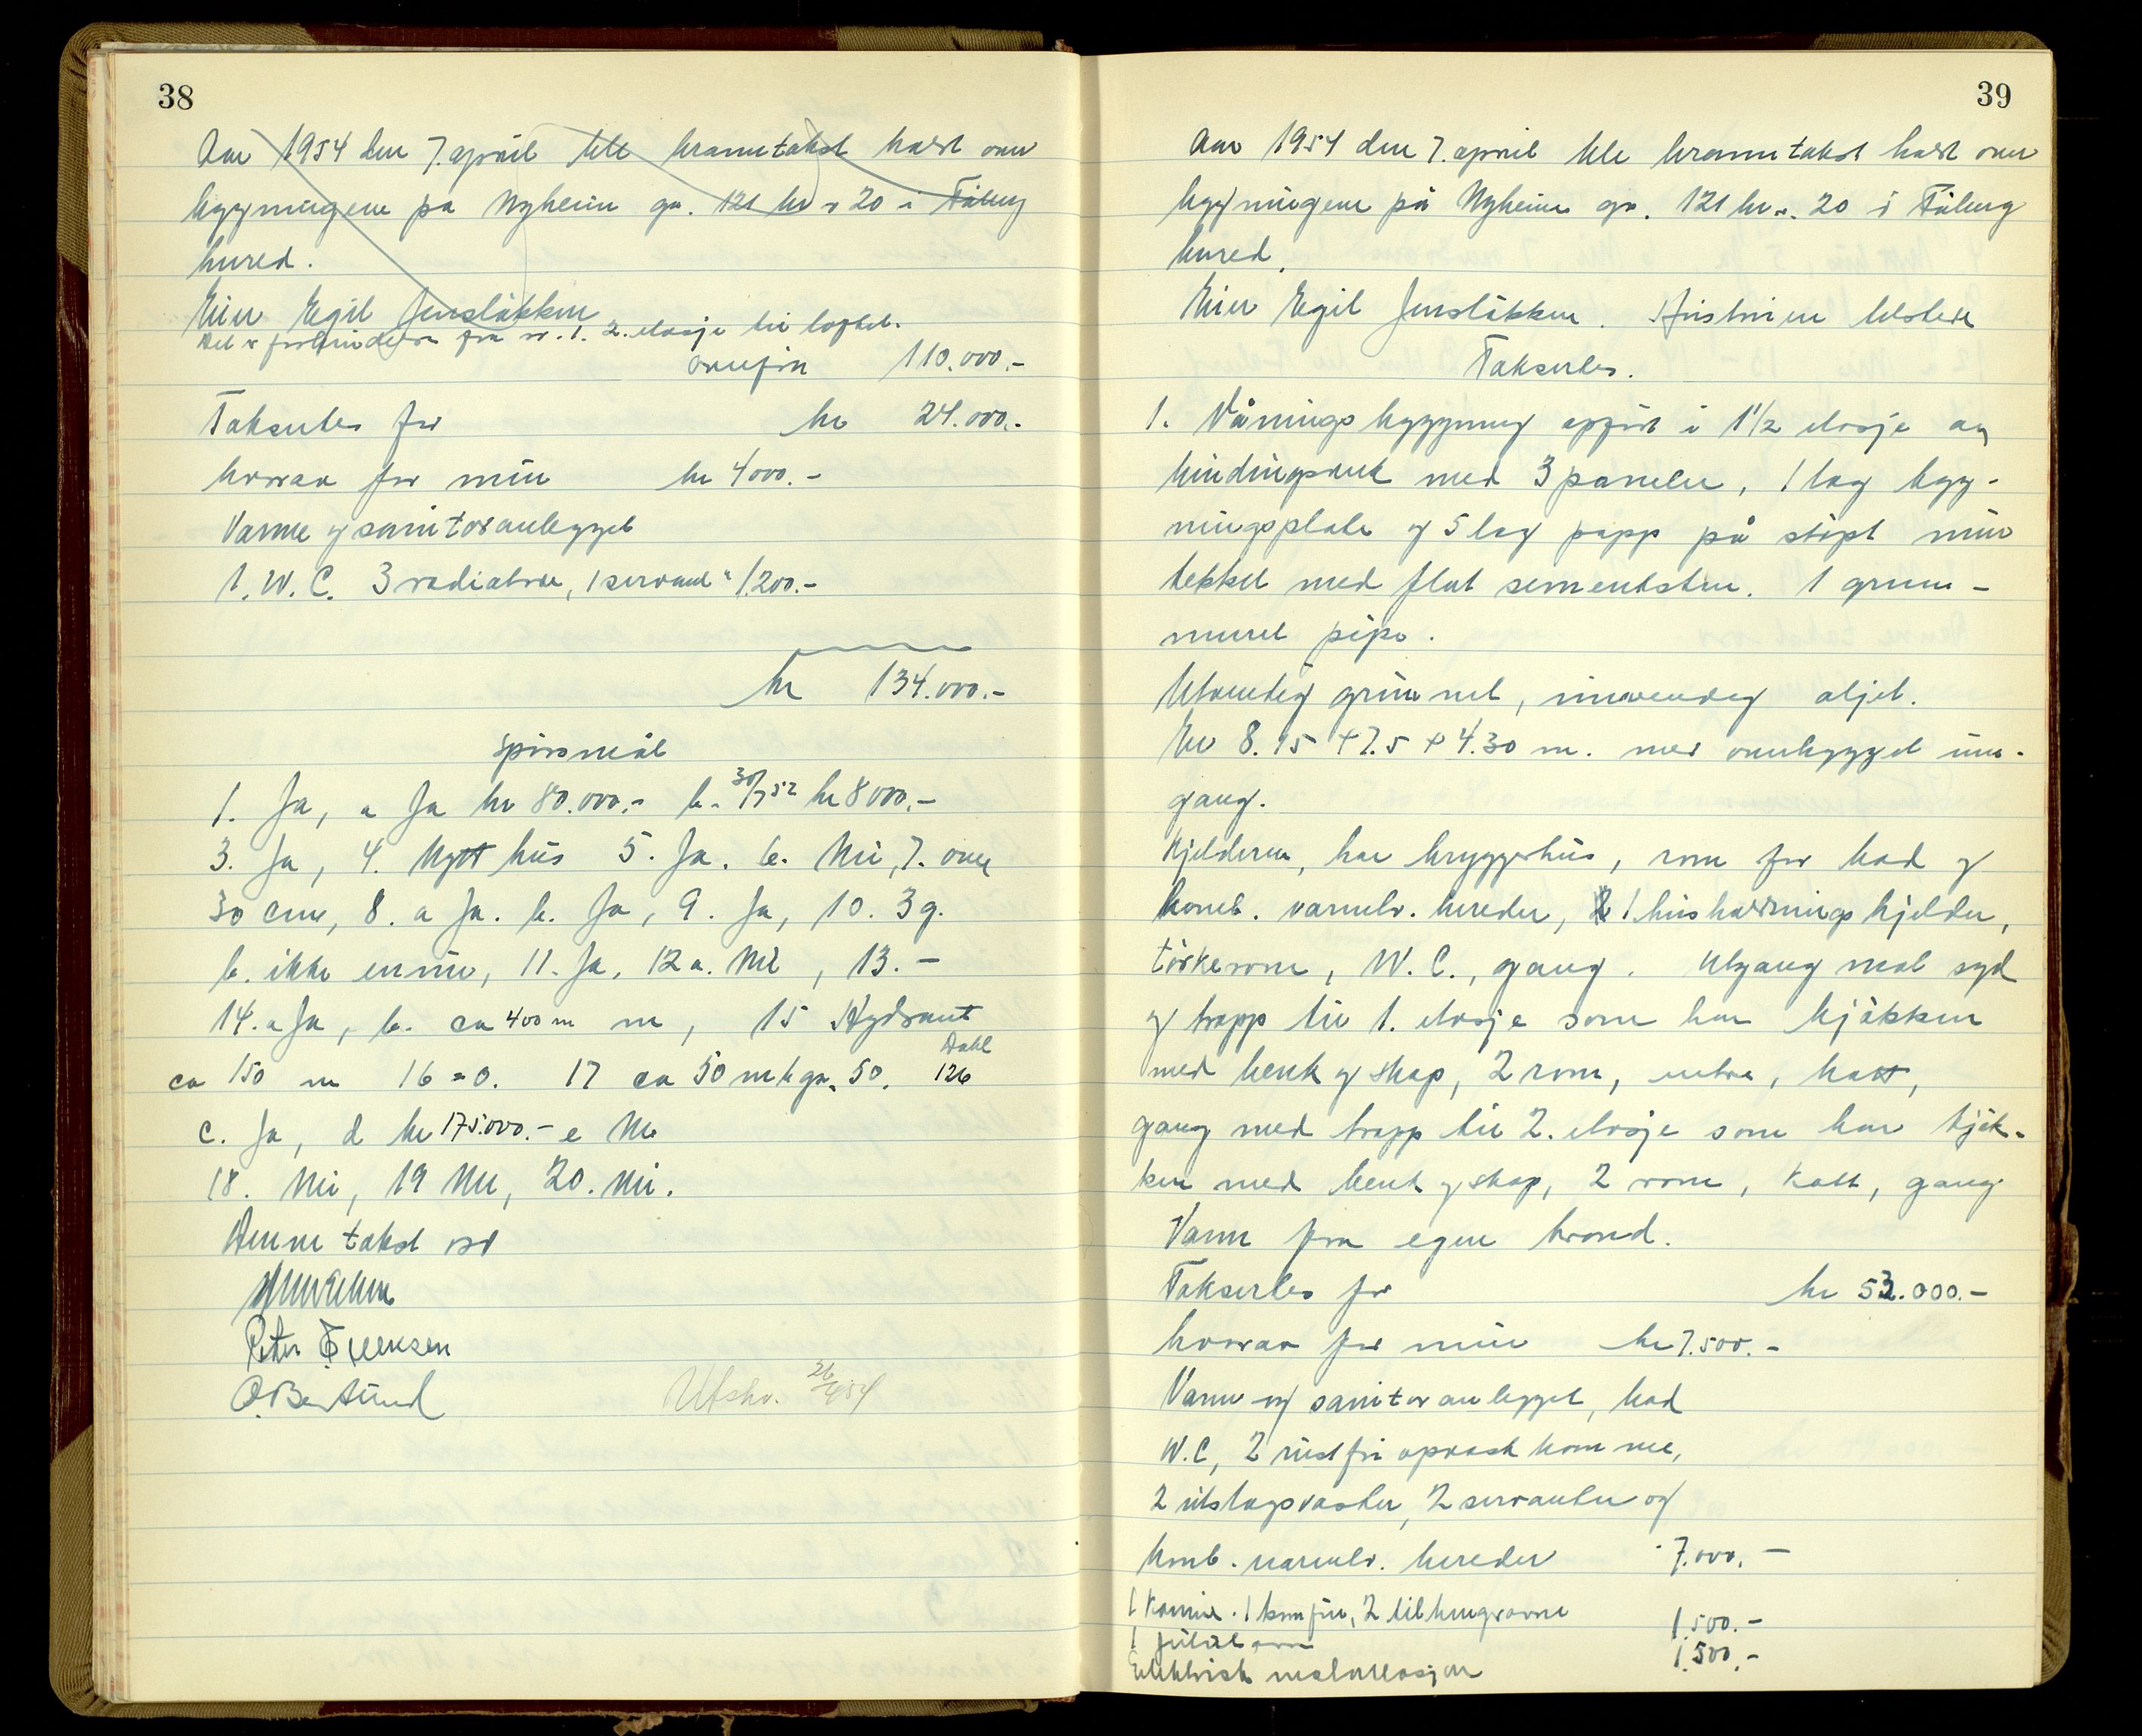 38
Aar 1954 den 7. april ble branntakst holdt over
bygningene på Nyheim gn. 121 br n 20 i Fåberg
hered.
Eier Egil Jensløkken
Det er forbindelse fra nr. 1. 2. etasje til loftet.
overfør 110.000.-
Takseres for kr 24.000.-
hvorav for mur kr 4000.-
Varme og sanitæranlegget
1. W.C. 3 radiatorer, 1 servant " 1.200.-
kr 134.000.-
Spørsmål
1. Ja, a Ja kr 80.000.- b. 30/7 52 kr 8000.-
3. Ja, 4. Nytt hus 5. Ja. 6. Nei, 7. over
30 cm, 8. a Ja. b. Ja, 9. Ja, 10. 3 g.
b. ikke ennu, 11. Ja, 12 a. Nei, 13. -
14. a Ja, b. ca 400 m m, 15 Hydrant
ca 150 m 16 = 0. 17 ca 50 m b gn. 50. Dahl 126
c. Ja, d kr 175.000.- e Nei
18. Nei, 19 Nei, 20. Nei.
Denne takst osv
Peter
Utskr. 26/4 54
39
Aar 1954 den 7. april ble branntakst holdt over
bygningene på Nyheim gn. 121 br.n. 20 i Fåberg
hered.
Eier Egil Jensløkken. Hustruen tilstede
Takseres.
1. Våningsbygning oppført i 1 1/2 etasje av
bindingsverk med 3 paneler, 1 lag byg-
ningsplate og 5 lag papp på støpt mur
tekket med flat sementsten. 1 grunn-
muret pipe.
Utvendig grunnet, innvendig oljet.
Er 8.15 + 7.5 + 4.30 m. med overbygget inn-
gang.
Kjelderen, har bryggerhus, rom for bad og
komb. varmtv. bereder, 1 husholdningskjelder,
tørkerom, W.C., gang. Utgang mot syd
og trapp til 1. etasje som har kjøkken
med benk og skap, 2 rom, entre, kott,
gang med trapp til 2. etasje som har kjøk-
ken med benk og skap, 2 rom, kott, gang
Vann fra egen brønd.
Takseres for kr 53.000.-
hvorav for mur kr 7.500.-
Varme og sanitæranlegget, bad
W.C, 2 rustfri oppvaskkommer,
2 utslagsvasker, 2 servanter og
komb. varmtv. bereder " 7.000.-
1 kamin. 1 komfur, 2 etasjeovner 1.500.-
1
Elektrisk installasjon 1.500.-